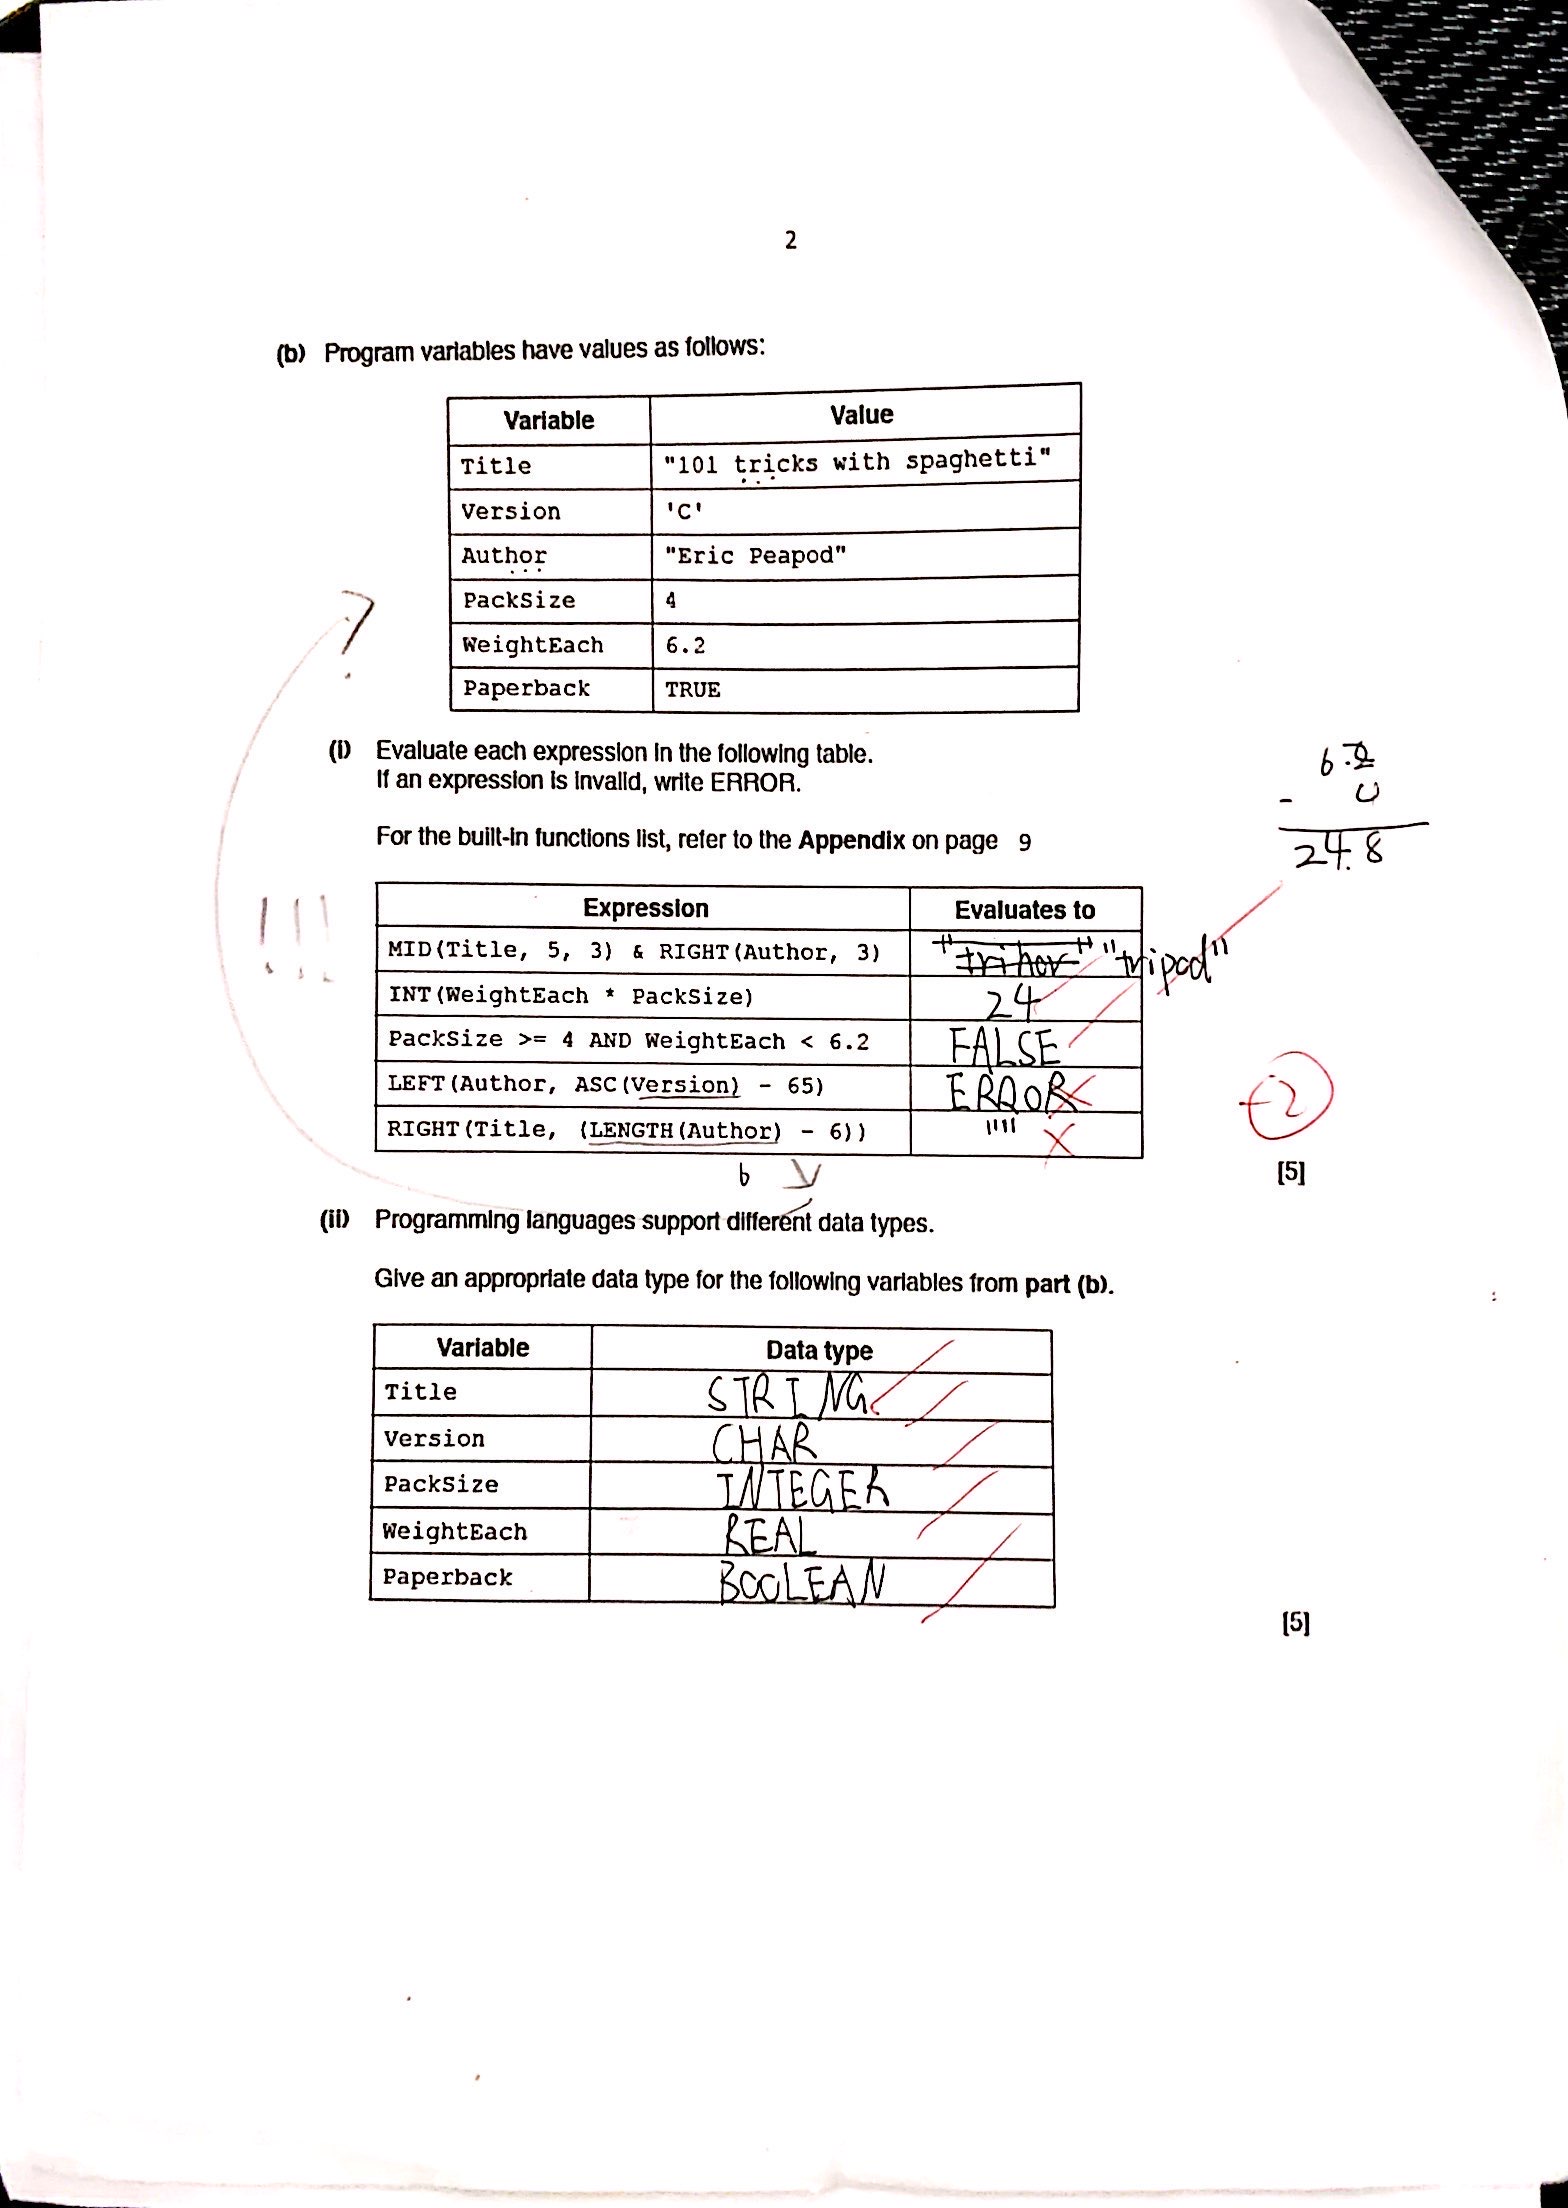 2
(b) Program variables have values as follows:
Variable Value
Title "101 tricks with spaghetti"
Version 'C'
Author "Eric Peapod"
PackSize 4
WeightEach 6.2
Paperback TRUE
(i) Evaluate each expression in the following table.
If an expression is invalid, write ERROR.
For the built-in functions list, refer to the Appendix on page 9
6.2
-
24.8
!!!
Expression Evaluates to
MID(Title, 5, 3) & RIGHT(Author, 3) "trihor" "tripod"
INT(WeightEach * PackSize) 24
PackSize >= 4 AND WeightEach < 6.2 FALSE
LEFT(Author, ASC(Version) - 65) ERROR
RIGHT(Title, (LENGTH(Author) - 6)) ""
-2
6
[5]
(ii) Programming languages support different data types.
Give an appropriate data type for the following variables from part (b).
Variable Data type
Title STRING
Version CHAR
PackSize INTEGER
WeightEach REAL
Paperback BOOLEAN
[5]